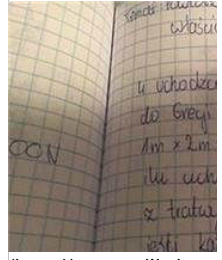 OON
właści
u uchodźc
do Grecji
1m x 2m
ilu uch
z tratw
jeśli ka